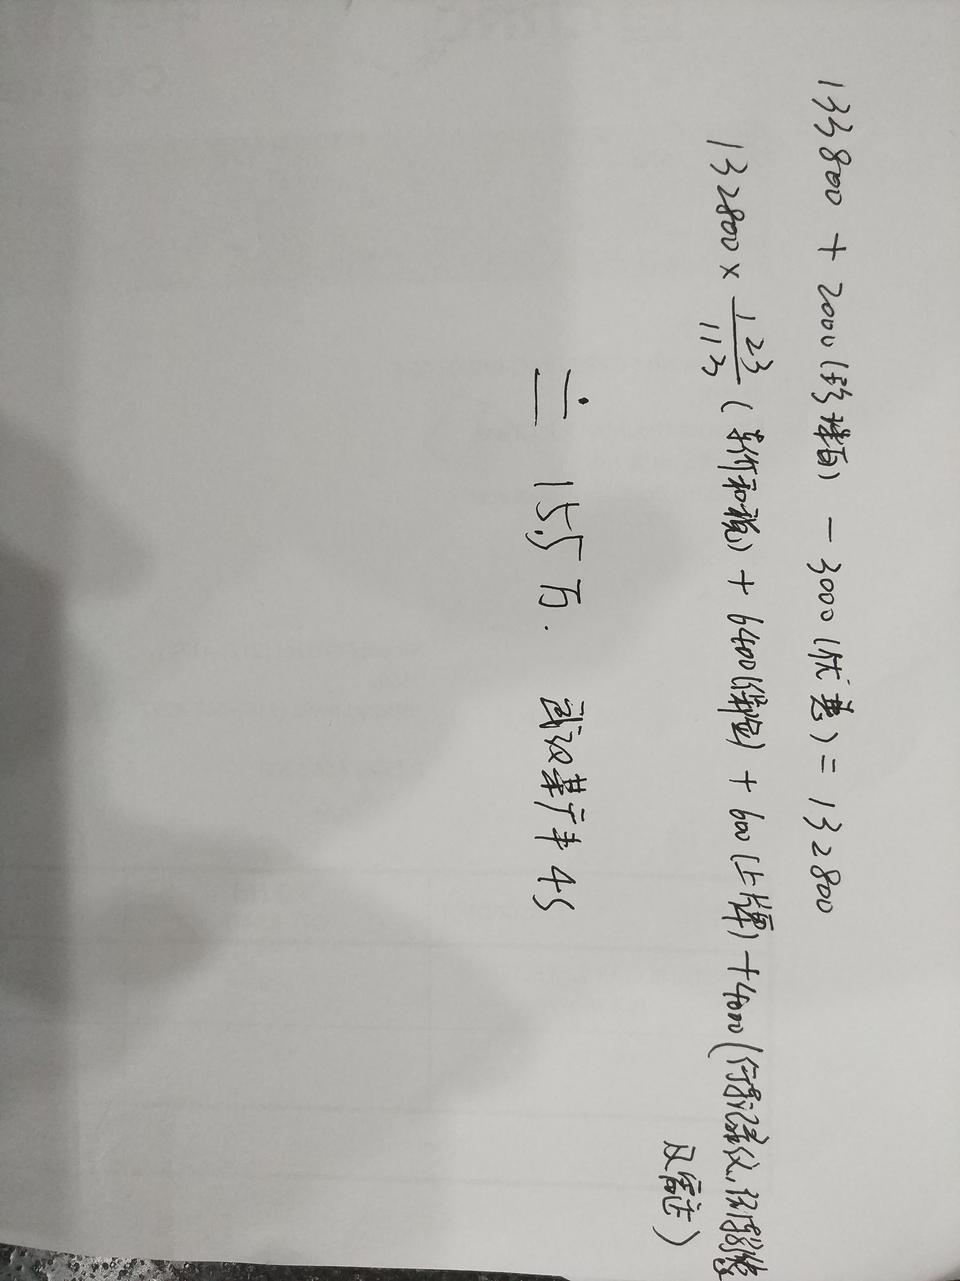 133800 + 2000(珍珠白) - 3000(优惠) = 132800
132800 × 123/113 (车价和税) + 6400(保险) + 600(上牌) + 4000(行车记录仪,
及
≐ 15.5万. 武汉某广丰4S